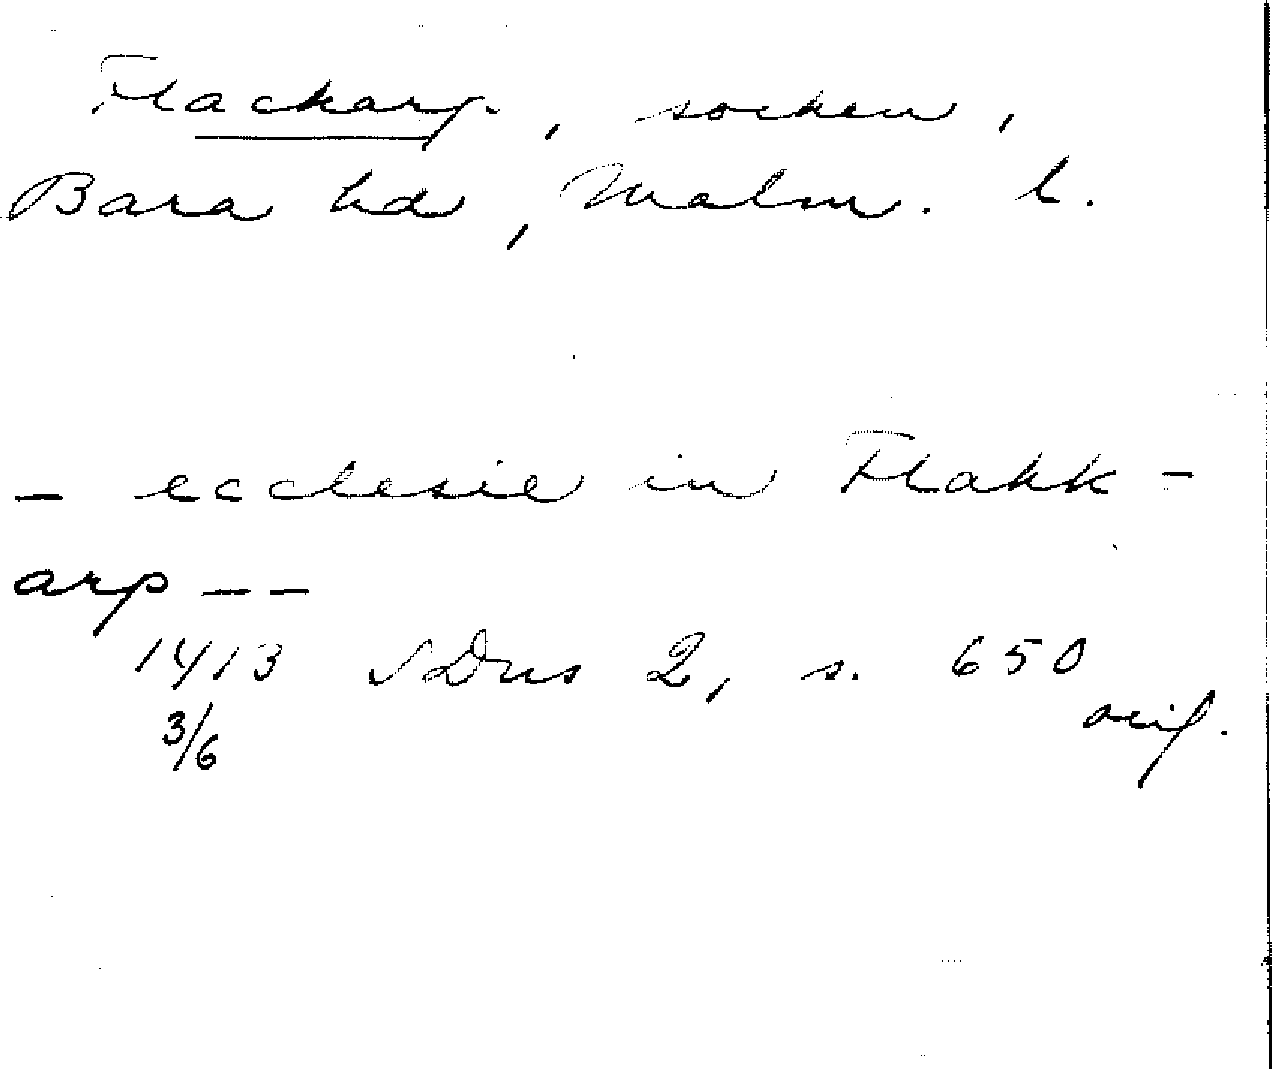 Flackarp, socken,
Bara hd, Malm. l.
- ecclesie in Flakk-
arp --
1413 SDns 2, s. 650
3/6 orig.